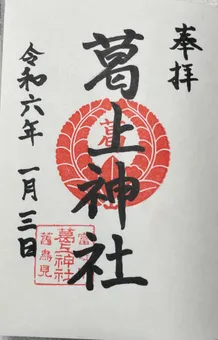 奉拝
葛上神社
令和六年 一月三日
葛
葛上神社
舊鳥見